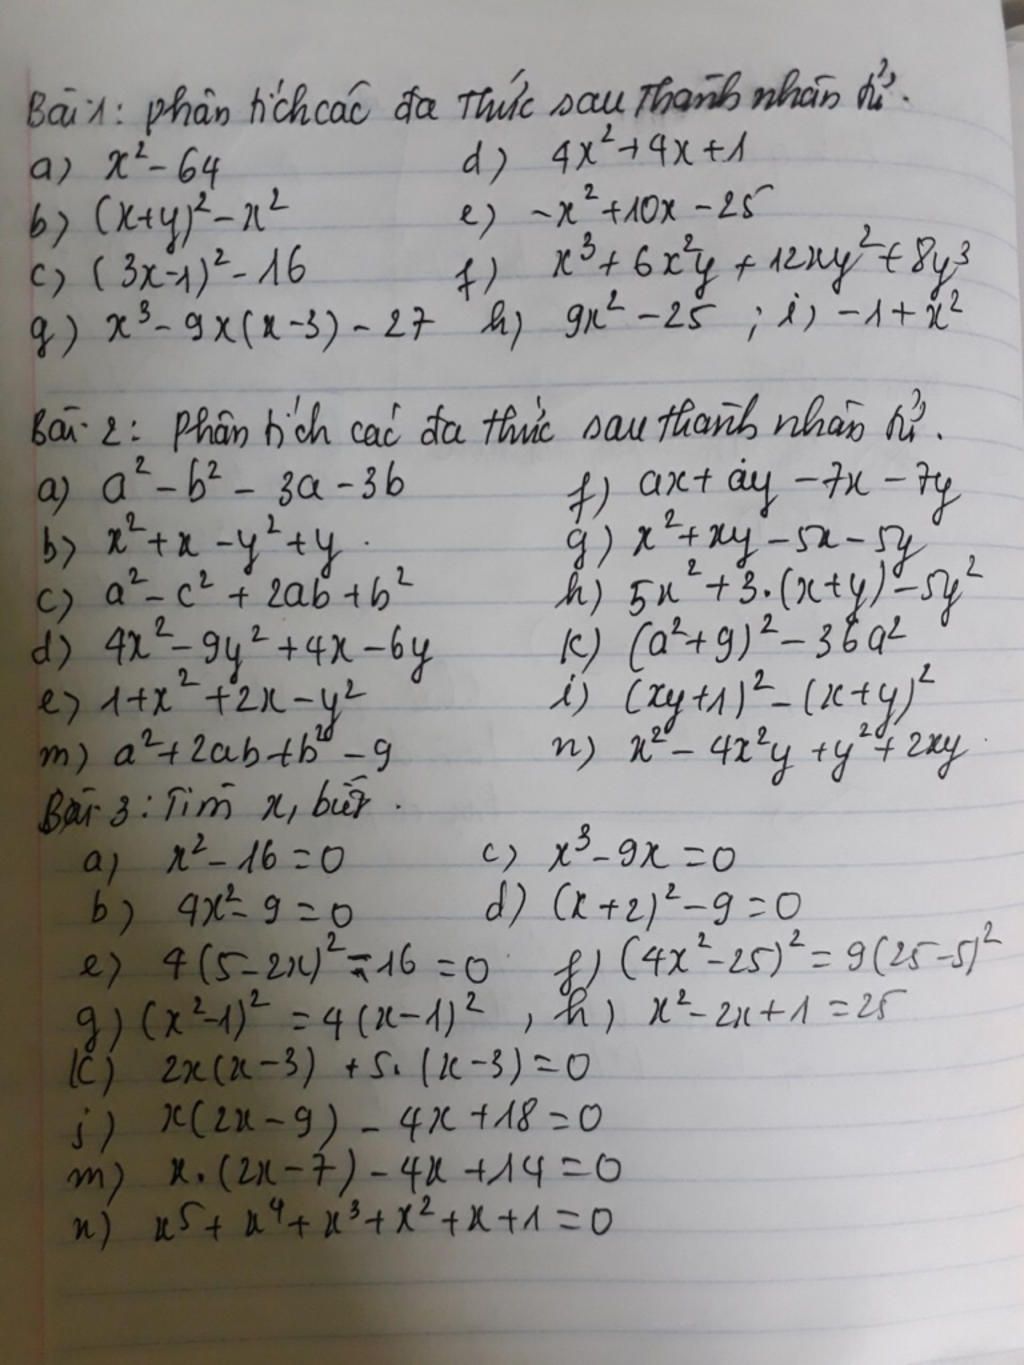 Bài 1: phân tích các đa thức sau thành nhân tử.
a) x² - 64 d) 4x² + 4x + 1
b) (x+y)² - x² e) -x² + 10x - 25
c) (3x-1)² - 16 f) x³ + 6x²y + 12xy² + 8y³
g) x³ - 9x(x-3) - 27 h) 9x² - 25 ; i) -1 + x²
Bài 2: phân tích các đa thức sau thành nhân tử.
a) a² - b² - 3a - 3b f) ax + ay - 7x - 7y
b) x² + x - y² + y. g) x² + xy - 5x - 5y
c) a² - c² + 2ab + b² h) 5x² + 3.(x+y) - 5y²
d) 4x² - 9y² + 4x - 6y k) (a²+9)² - 36a²
e) 1 + x² + 2x - y² i) (xy+1)² - (x+y)²
m) a² + 2ab + b² - 9 n) x² - 4x²y + y² + 2xy.
Bài 3: Tìm x, biết.
a) x² - 16 = 0 c) x³ - 9x = 0
b) 4x² - 9 = 0 d) (x+2)² - 9 = 0
e) 4(5-2x)² - 16 = 0 f) (4x² - 25)² = 9(25-5)²
g) (x²-1)² = 4(x-1)², h) x² - 2x + 1 = 25
k) 2x(x-3) + 5.(x-3) = 0
j) x(2x-9) - 4x + 18 = 0
m) x.(2x-7) - 4x + 14 = 0
n) x⁵ + x⁴ + x³ + x² + x + 1 = 0